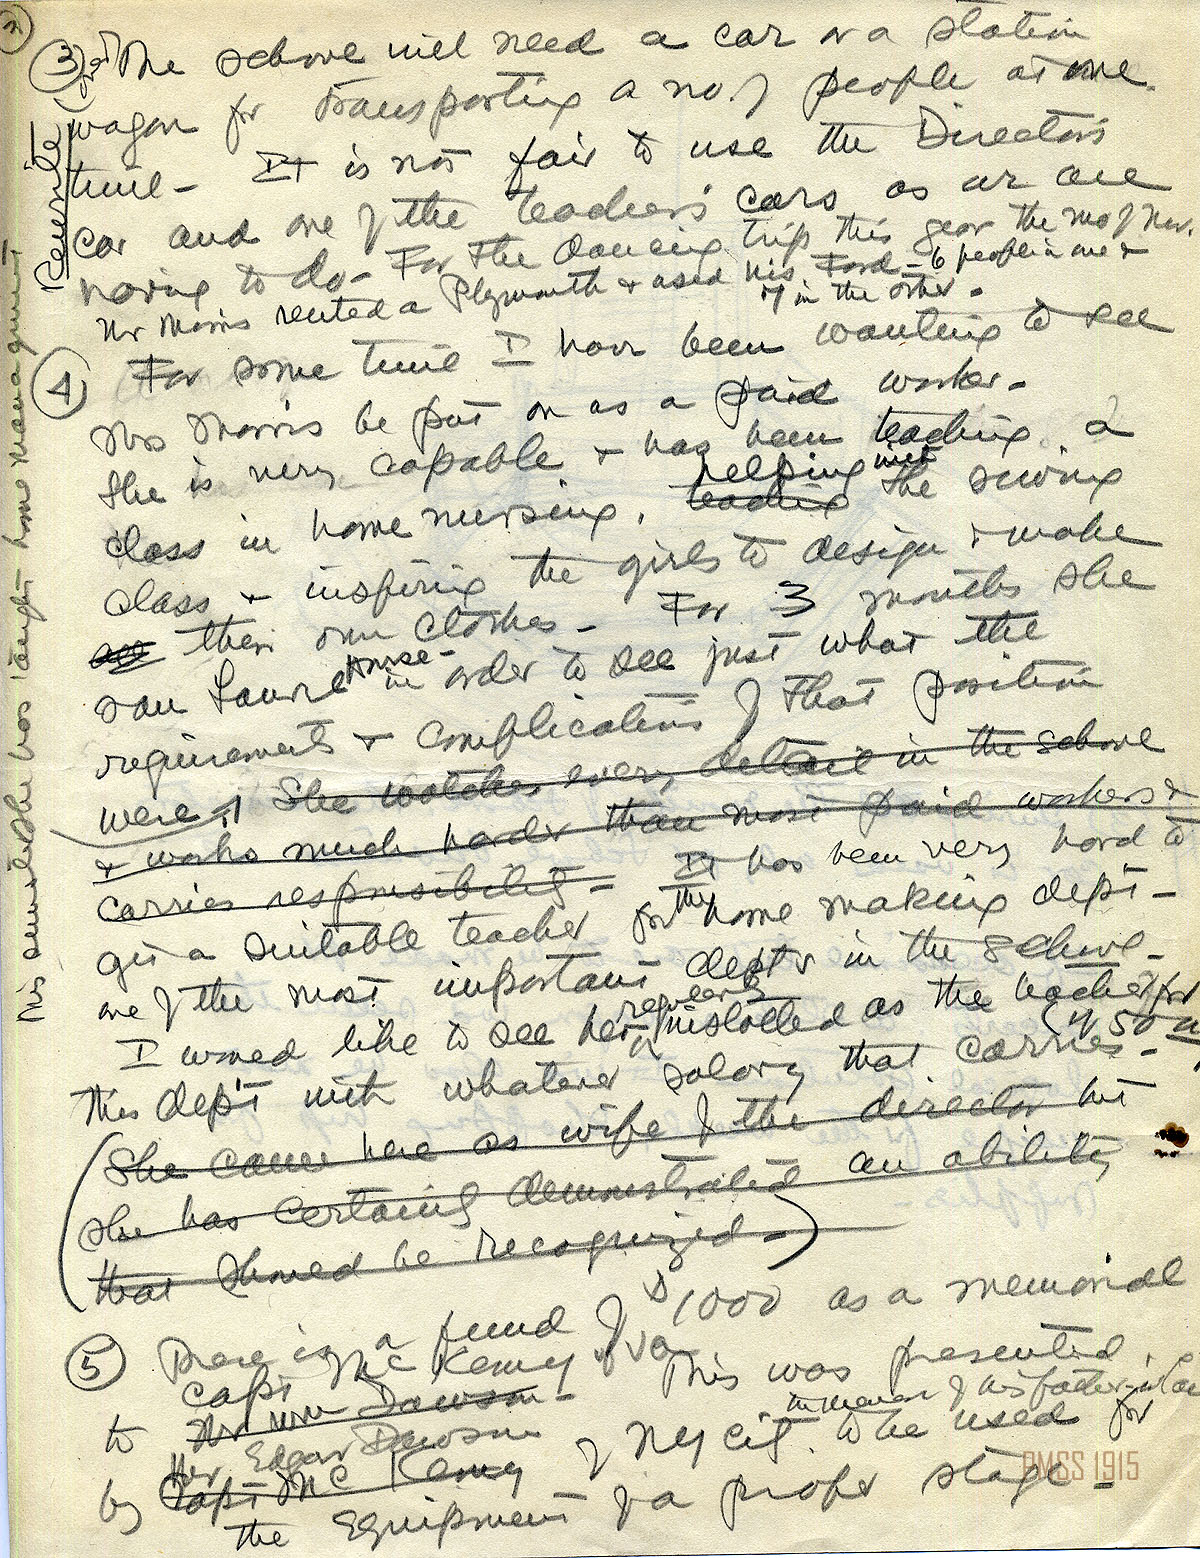 2
③ The school will need a car or a station
wagon for transporting a no. of people at one
time - It is not fair to use the Director's
car and one of the teachers' cars as we are
having to do - For the dancing trip this year the mo of Nov.
Mr Morris rented a Plymouth & used his Ford - 6 people in one &
7 in the other -
Rewrite
④ For some time I have been wanting to see
Mrs Morris be put on as a paid worker -
She is very capable & has been teaching a
class in home nursing, teaching helping with the sewing
class & inspiring the girls to design & make
all their own clothes - For 3 months she
ran Laurel House - in order to see just what the
requirements & complications of that position
were. She watches every detail in the school
& works much harder than most paid workers &
carries responsibility - It has been very hard to
get a suitable teacher for the home making dept -
one of the most important dept's in the school -
I would like to see her regularly installed as the teacher for
this dept with whatever salary that carries -
(She came here as wife of the director but
she has certainly demonstrated an ability
that should be recognized -)
This semester she has taught home management
⑤ There is a fund of $1000 as a memorial
to Mr Wm Dawson - Capt Mc Kemy of Va This was presented
by Capt Mc Kemy Mr Edgar Dawson of N Y City. in memory of his father-in-law to be used for
the equipment of a proper stage -
PMSS 1915